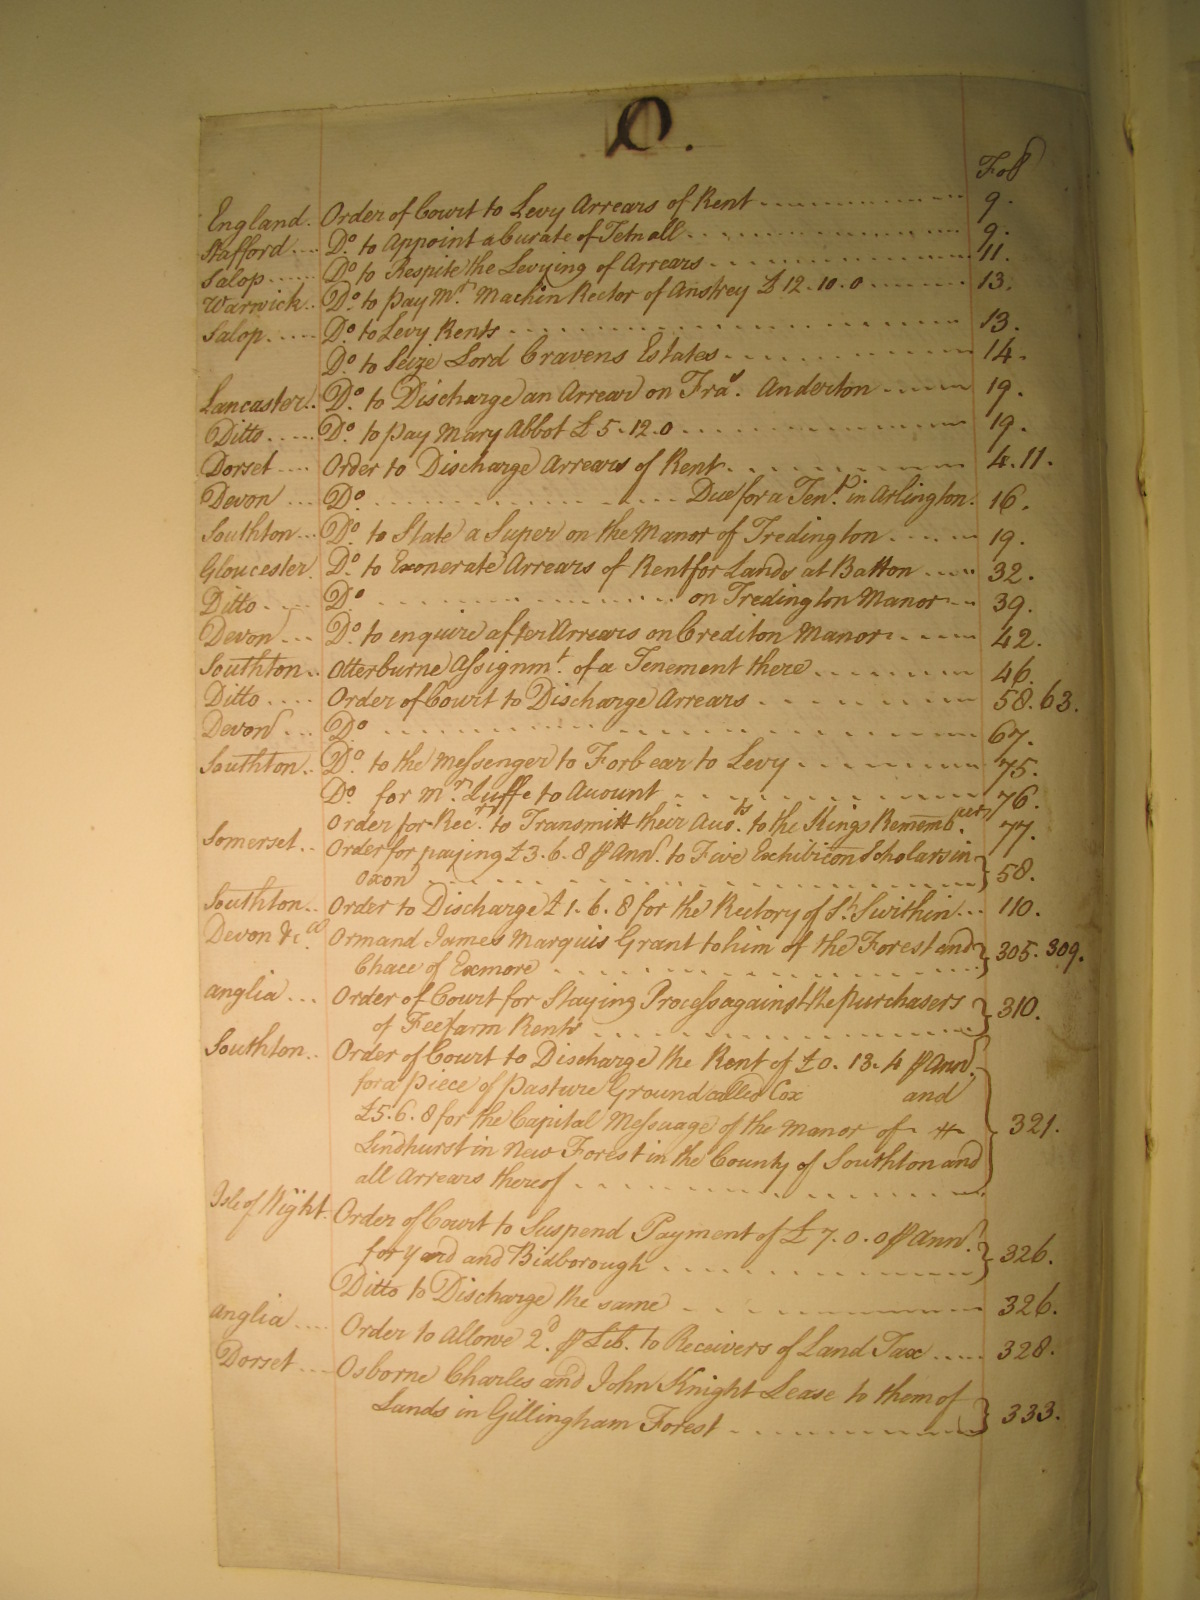 O.
Fol
England. Order of Court to Levy Arrears of Rent 9.
Stafford Do. to Appoint a Curate of Tetnall 9.
Salop Do. to Respite the Levying of Arrears 11.
Warwick Do. to pay Mr. Machin Rector of Anstrey £12.10.0 13.
Salop Do. to Levy Rents 13.
Do. to Seize Lord Cravens Estates 14.
Lancaster Do. to Discharge an Arrear on Fras. Anderton 19.
Ditto Do. to pay Mary Abbot £5.12.0 19.
Dorset Order to Discharge Arrears of Rent 4.11.
Devon Do. Due for a Tent. in Arlington. 16.
Southton Do. to State a Super on the Manor of Tredington 19.
Gloucester. Do. to Exonerate Arrears of Rent for Lands at Batton 32.
Ditto Do. on Tredington Manor 39.
Devon Do. to enquire after Arrears on Crediton Manor 42.
Southton Otterburne Assignmt. of a Tenement there 46.
Ditto Order of Court to Discharge Arrears 58.63.
Devon Do. 67.
Southton Do. to the Messenger to Forbear to Levy 75.
Do. for Mr. Luffe to Account 76.
Order for Recrs. to Transmitt their Accots. to the Kings Rememb.cer 77.
Somerset Order for paying £3.6.8 ⅌ Ann. to Five Exhibicon Scholars in
Oxon 58.
Southton Order to Discharge £1.6.8 for the Rectory of St. Swithin 110.
Devon &c.a Ormand James Marquis Grant to him of the Forest and
Chace of Exmore 305.309.
Anglia Order of Court for Staying Process against the purchasers
of Feefarm Rents 310.
Southton Order of Court to Discharge the Rent of £0.13.4 ⅌ Ann.
for a piece of Pasture Ground called Cox and
£5.6.8 for the Capital Messuage of the Manor of
Lindhurst in New Forest in the County of Southton and 321.
all Arrears thereof
Isle of Wight. Order of Court to Suspend Payment of £7.0.0 ⅌ Ann.
for Yard and Bidborough 326.
Ditto to Discharge the same 326.
Anglia Order to Allowe 2d. ⅌ Lib. to Receivers of Land Tax 328.
Dorset Osborne Charles and John Knight Lease to them of
Lands in Gillingham Forest 333.